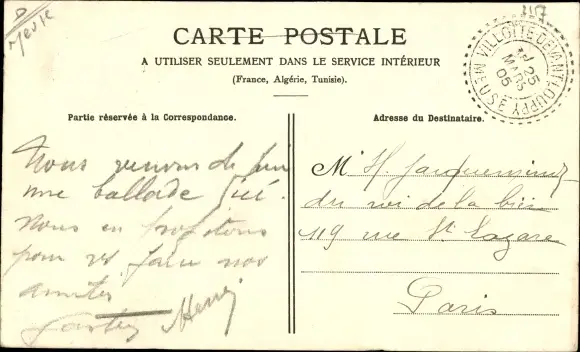 D
Meuse
3157
CARTE POSTALE
A UTILISER SEULEMENT DANS LE SERVICE INTÉRIEUR
(France, Algérie, Tunisie).
VILLOTTE DEVANT LOUPPY
25
MARS
05
MEUSE
Partie réservée à la Correspondance.
Nous venons de
une ballade
Nous en profitons
pour vs faire nos
amitiés
Henri
Adresse du Destinataire.
Mr H. Jacquemin
du roi de la bière
119 rue St Lazare
Paris